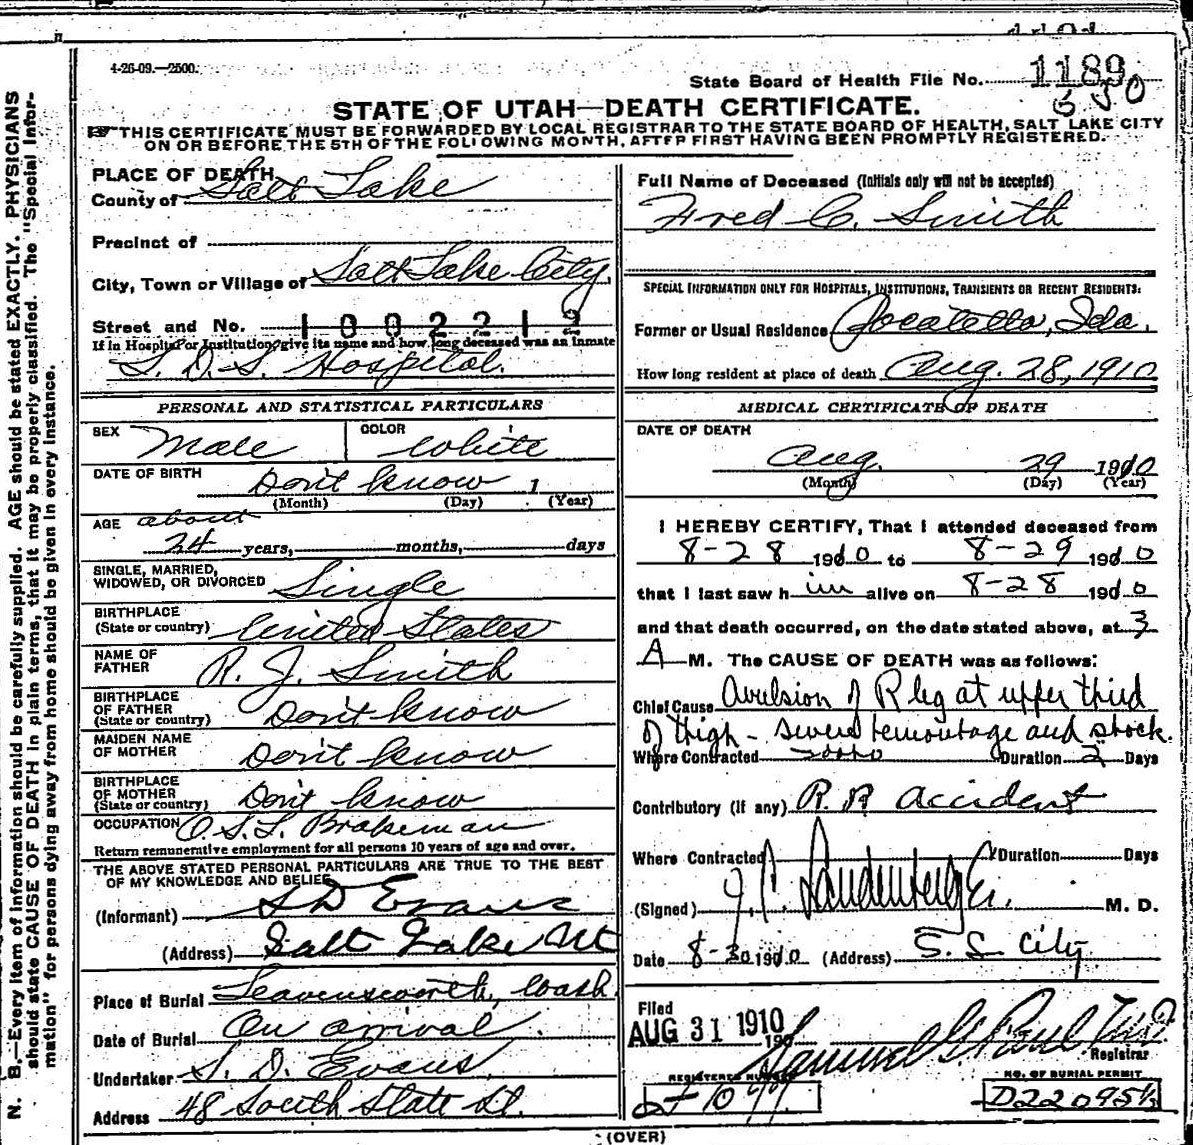 4-26-09.—2500.
State Board of Health File No. 1189
550
STATE OF UTAH—DEATH CERTIFICATE.
THIS CERTIFICATE MUST BE FORWARDED BY LOCAL REGISTRAR TO THE STATE BOARD OF HEALTH, SALT LAKE CITY
ON OR BEFORE THE 5TH OF THE FOLLOWING MONTH, AFTER FIRST HAVING BEEN PROMPTLY REGISTERED.
N. B.—Every item of information should be carefully supplied. AGE should be stated EXACTLY. PHYSICIANS
should state CAUSE OF DEATH in plain terms, that it may be properly classified. The "Special Infor-
mation" for persons dying away from home should be given in every instance.
PLACE OF DEATH
County of Salt Lake
Precinct of
City, Town or Village of Salt Lake City
Street and No. 1002212
If in Hospital or Institution, give its name and how long deceased was an inmate
L. D. S. Hospital.
PERSONAL AND STATISTICAL PARTICULARS
SEX Male COLOR White
DATE OF BIRTH Don't know 1
(Month) (Day) (Year)
AGE about
24 years, months, days
SINGLE, MARRIED,
WIDOWED, OR DIVORCED Single
BIRTHPLACE
(State or country) United States
NAME OF
FATHER R. J. Smith
BIRTHPLACE
OF FATHER
(State or country) Don't know
MAIDEN NAME
OF MOTHER Don't know
BIRTHPLACE
OF MOTHER
(State or country) Don't know
OCCUPATION O.S.L. Brakeman
Return remunerative employment for all persons 10 years of age and over.
THE ABOVE STATED PERSONAL PARTICULARS ARE TRUE TO THE BEST
OF MY KNOWLEDGE AND BELIEF
(Informant) S D Evans
(Address) Salt Lake Ut
Place of Burial Leavensworth, Wash.
Date of Burial On arrival.
Undertaker S. D. Evans,
Address 48 South State St.
Full Name of Deceased (Initials only will not be accepted)
Fred C. Smith
SPECIAL INFORMATION ONLY FOR HOSPITALS, INSTITUTIONS, TRANSIENTS OR RECENT RESIDENTS:
Former or Usual Residence Pocatello, Ida.
How long resident at place of death Aug. 28, 1910
MEDICAL CERTIFICATE OF DEATH
DATE OF DEATH
Aug. 29 1910
(Month) (Day) (Year)
I HEREBY CERTIFY, That I attended deceased from
8-28 1910 to 8-29 1910
that I last saw him alive on 8-28 1910
and that death occurred, on the date stated above, at 3
A M. The CAUSE OF DEATH was as follows:
Chief Cause Avulsion of R leg at upper third
of thigh - severe hemorrhage and shock.
Where Contracted Duration 2 Days
Contributory (if any) R. R accident
Where Contracted Duration Days
(Signed) M. D.
Date 8-30 1910 (Address) S. L. City.
Filed
AUG 31 1910
190
Samuel G. Paul M.D.
Registrar
REGISTERED NUMBER
1099
NO. OF BURIAL PERMIT
D22095½
(OVER)